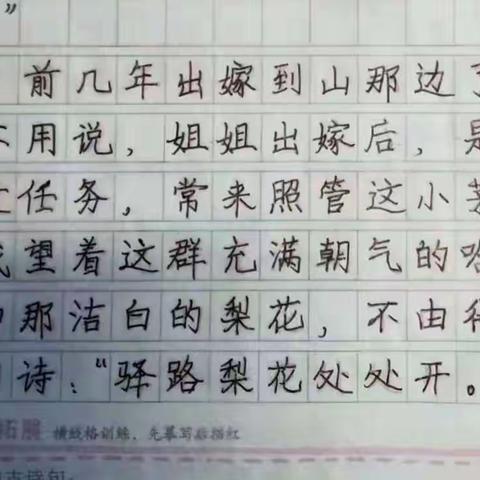 ”
前几年出嫁到山那边了
不用说，姐姐出嫁后，是
任务，常来照管这小茅
我望着这群充满朝气的哈
和那洁白的梨花，不由得
诗：“驿路梨花处处开。
拓展 横线格训练，先摹写后描红
古诗句：